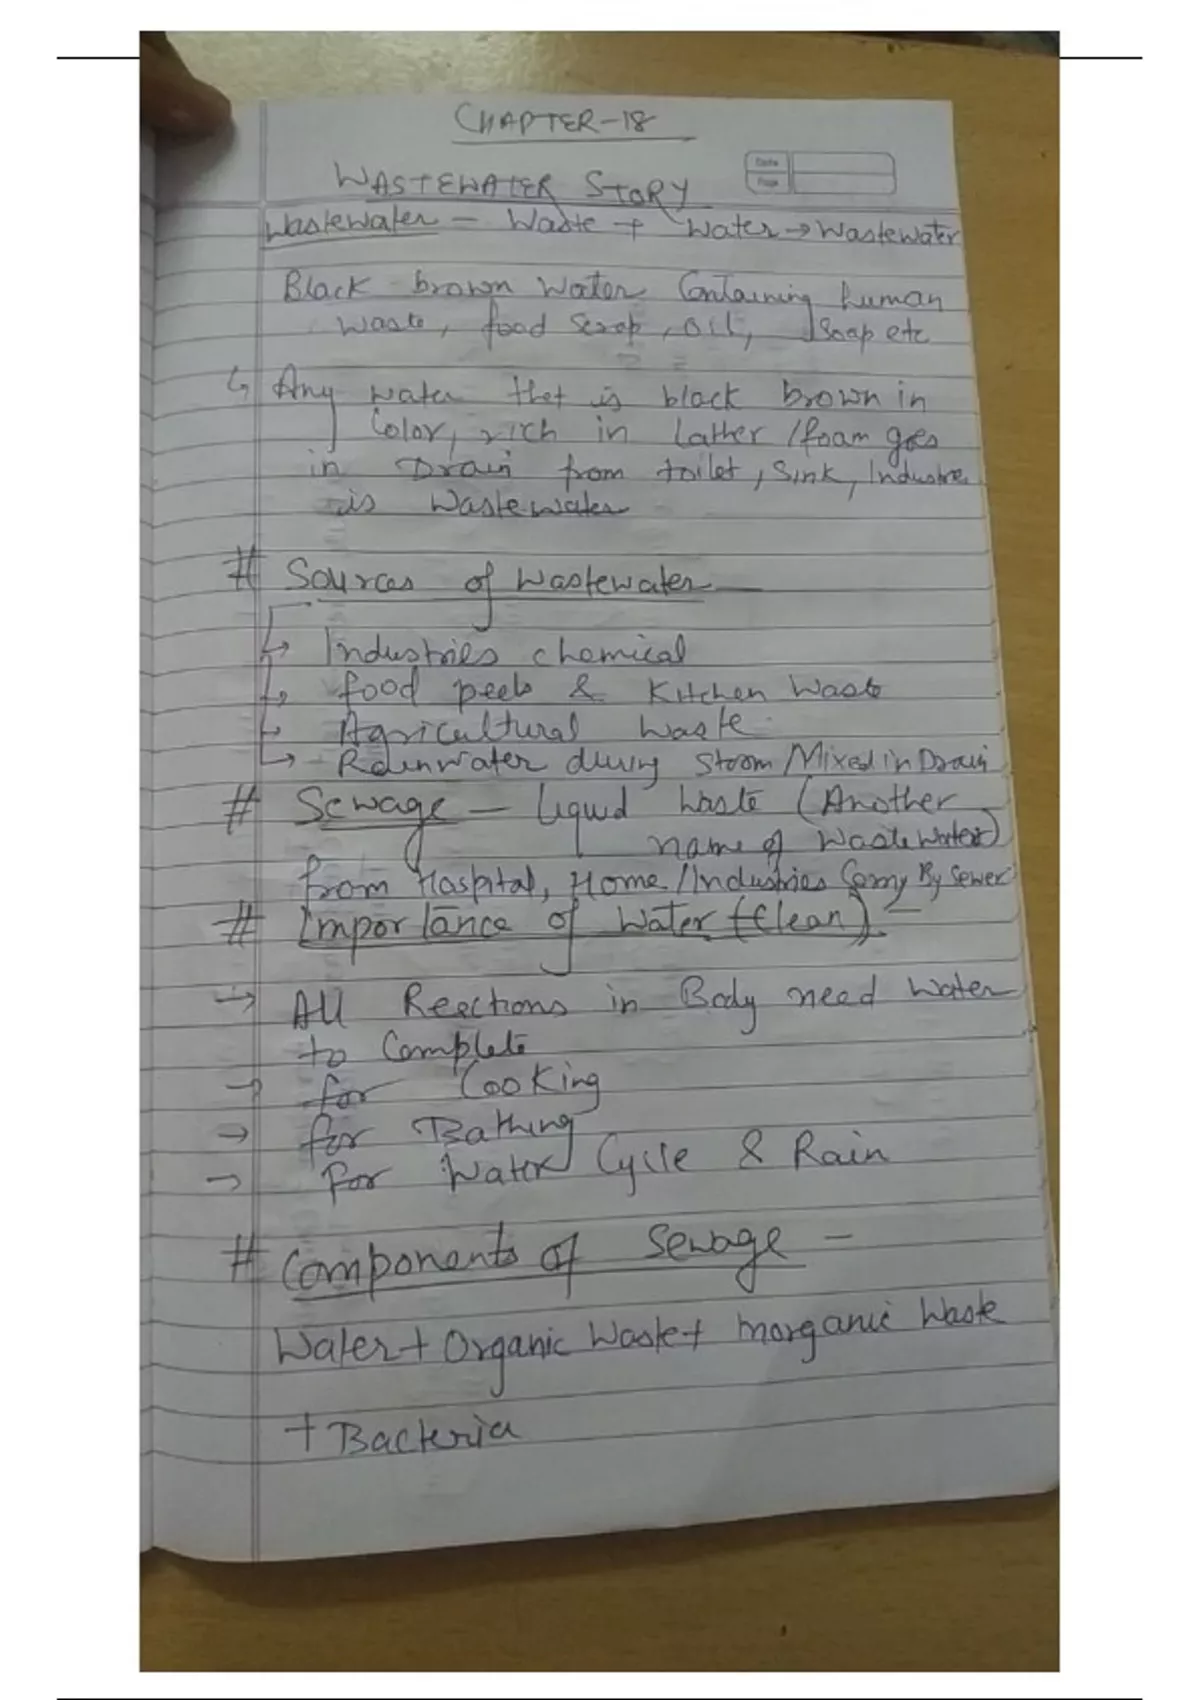 CHAPTER-18
Date
Page
WASTEWATER STORY
Wastewater - Waste + Water → Wastewater
Black brown water Containing human
waste, food scrap, oil, soap etc
↳ Any water that is black brown in
Color, rich in Lather / foam goes
in Drain from toilet, Sink, Industre
is Wastewater
# Sources of wastewater
↳ Industries chemical
↳ food peels & Kitchen Waste
↳ Agricultural Waste
↳ Rainwater during Storm / Mixed in Drain
# Sewage - Liquid Waste (Another
name of Wastewater)
from Hospital, Home / Industries Carry By Sewer
# Importance of Water (Clean) -
→ All Reactions in Body need Water
to Complete
→ for Cooking
→ for Bathing
→ for Water Cycle & Rain
# Components of Sewage -
Water + Organic Waste + Inorganic Waste
+ Bacteria